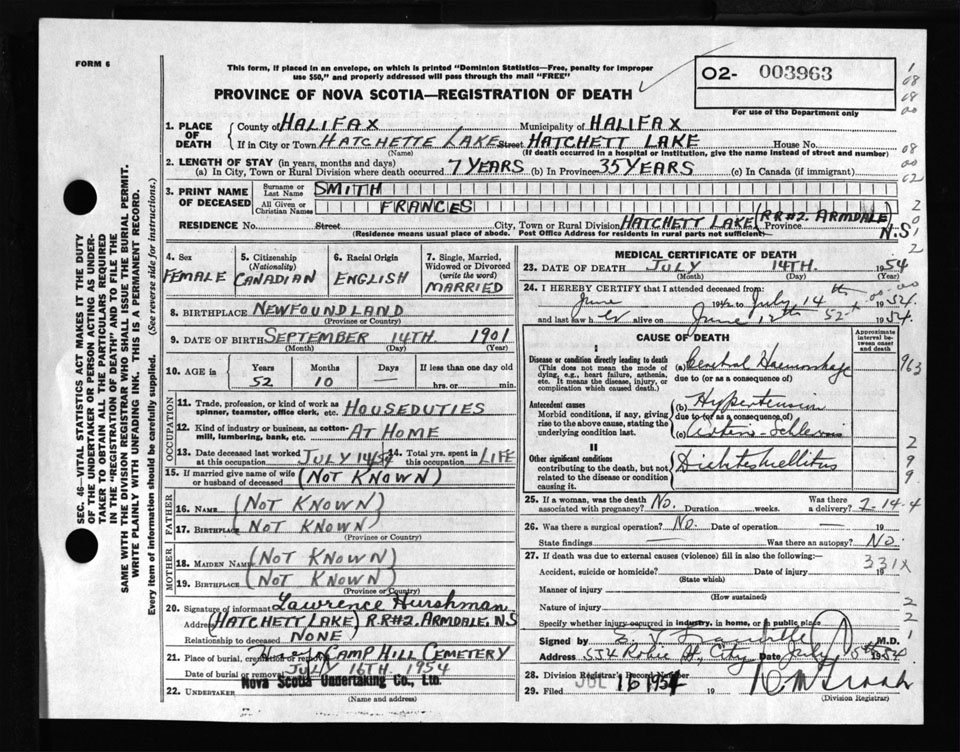 FORM 6
This form, if placed in an envelope, on which is printed "Dominion Statistics—Free, penalty for improper
use $50," and properly addressed will pass through the mail "FREE"
PROVINCE OF NOVA SCOTIA—REGISTRATION OF DEATH
02- 003963
For use of the Department only
1. PLACE OF DEATH { County of HALIFAX Municipality of HALIFAX
If in City or Town HATCHETTE LAKE Street HATCHETT LAKE House No.
(Name) (If death occurred in a hospital or institution, give the name instead of street and number)
2. LENGTH OF STAY (in years, months and days)
(a) In City, Town or Rural Division where death occurred 7 YEARS (b) In Province 35 YEARS (c) In Canada (if immigrant)
3. PRINT NAME OF DECEASED { Surname or Last Name SMITH
All Given or Christian Names FRANCES
RESIDENCE No. Street City, Town or Rural Division HATCHETT LAKE (RR#2. ARMDALE) Province N.S
(Residence means usual place of abode. Post Office Address for residents in rural parts not sufficient)
4. Sex FEMALE
5. Citizenship (Nationality) CANADIAN
6. Racial Origin ENGLISH
7. Single, Married, Widowed or Divorced (write the word) MARRIED
8. BIRTHPLACE NEWFOUNDLAND
(Province or Country)
9. DATE OF BIRTH SEPTEMBER 14TH. 1901
(Month) (Day) (Year)
10. AGE in { Years 52 Months 10 Days — If less than one day old hrs. or min.
OCCUPATION
11. Trade, profession, or kind of work as spinner, teamster, office clerk, etc. HOUSEDUTIES
12. Kind of industry or business, as cotton-mill, lumbering, bank, etc. AT HOME
13. Date deceased last worked at this occupation JULY 14/54 14. Total yrs. spent in this occupation LIFE
15. If married give name of wife or husband of deceased (NOT KNOWN)
FATHER
16. NAME (NOT KNOWN)
17. BIRTHPLACE (NOT KNOWN)
(Province or Country)
MOTHER
18. MAIDEN NAME (NOT KNOWN)
19. BIRTHPLACE (NOT KNOWN)
(Province or Country)
20. Signature of informant Lawrence Hurshman
Address (HATCHETT LAKE) R.R#2. ARMDALE, N.S
Relationship to deceased NONE
21. Place of burial, cremation or removal CAMP HILL CEMETERY
Date of burial or removal JULY 16TH. 1954
22. UNDERTAKER Nova Scotia Undertaking Co., Ltd.
(Name and address)
MEDICAL CERTIFICATE OF DEATH
23. DATE OF DEATH JULY 14TH. 1954
(Month) (Day) (Year)
24. I HEREBY CERTIFY that I attended deceased from:
June 19 to July 14th 1954.
and last saw her alive on June 1954.
CAUSE OF DEATH
Approximate interval between onset and death
I
Disease or condition directly leading to death (This does not mean the mode of dying, e.g., heart failure, asthenia, etc. It means the disease, injury, or complication which caused death.) (a) Cerebral Haemorrhage
due to (or as a consequence of)
Antecedent causes
Morbid conditions, if any, giving rise to the above cause, stating the underlying condition last. (b) Hypertension
due to (or as a consequence of)
(c) Arterio-Sclerosis
II
Other significant conditions contributing to the death, but not related to the disease or condition causing it.
25. If a woman, was the death associated with pregnancy? No. Duration weeks. Was there a delivery?
26. Was there a surgical operation? No. Date of operation — 19
State findings — Was there an autopsy? No.
27. If death was due to external causes (violence) fill in also the following:—
Accident, suicide or homicide? Date of injury 19
(State which)
331X
Manner of injury
(How sustained)
Nature of injury
Specify whether injury occurred in industry, in home, or in public place
Signed by M.D.
Address 554 Robie St., City Date July 1954
28. Division Registrar's Record Number
29. Filed JUL 16 1954 19
(Division Registrar)
SEC. 46—VITAL STATISTICS ACT MAKES IT THE DUTY
OF THE UNDERTAKER OR PERSON ACTING AS UNDER-
TAKER TO OBTAIN ALL THE PARTICULARS REQUIRED
IN THE "REGISTRATION OF DEATH" AND TO FILE THE
SAME WITH THE DIVISION REGISTRAR WHO SHALL ISSUE THE BURIAL PERMIT.
WRITE PLAINLY WITH UNFADING INK. THIS IS A PERMANENT RECORD.
Every item of information should be carefully supplied. (See reverse side for instructions.)